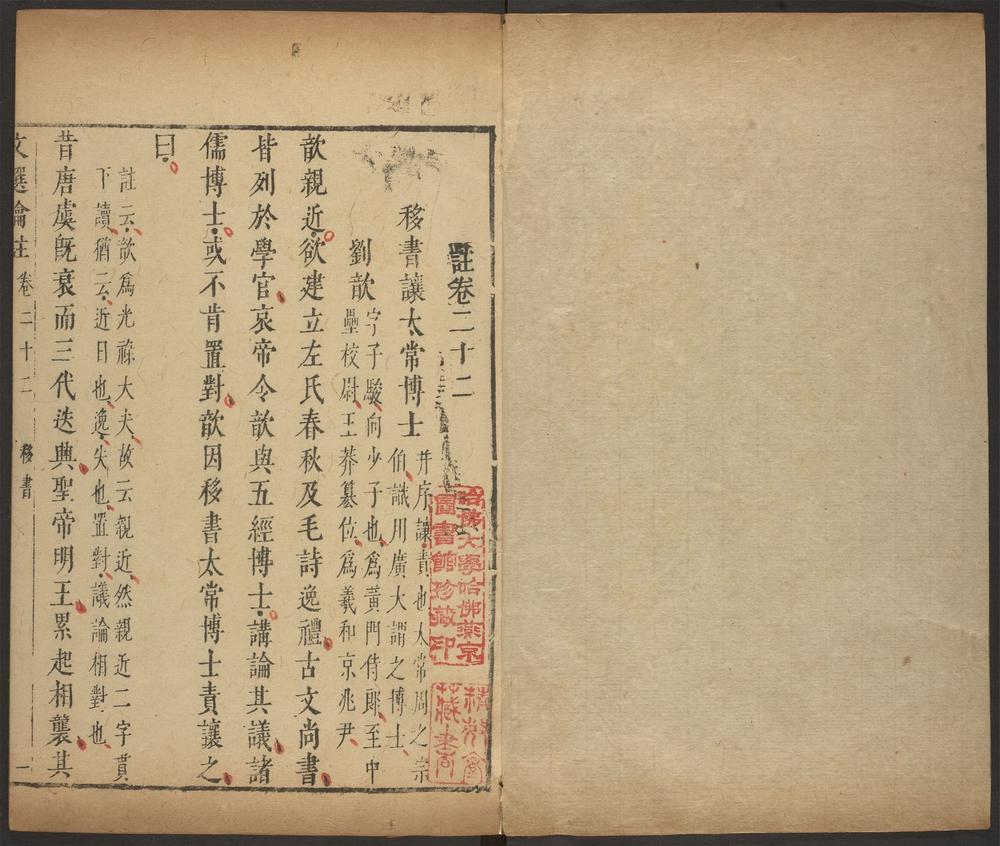 註卷二十二
移書讓太常博士
并序讓責也太常周之宗
伯識用廣大謂之博士
劉歆
字子駿向少子也為黃門侍郎至中
壘校尉王莽篡位為羲和京兆尹
歆親近欲建立左氏春秋及毛詩逸禮古文尚書
皆列於學官哀帝令歆與五經博士講論其議諸
儒博士或不肯置對歆因移書太常博士責讓之
曰
註云歆為光祿大夫故云親近然親近二字貫
下讀猶云近日也逸失也置對議論相對也
昔唐虞既衰而三代迭興聖帝明王累起相襲其
文選瀹註
卷二十二
移書
一
哈佛大學哈佛燕京
圖書館珍藏印
藏書